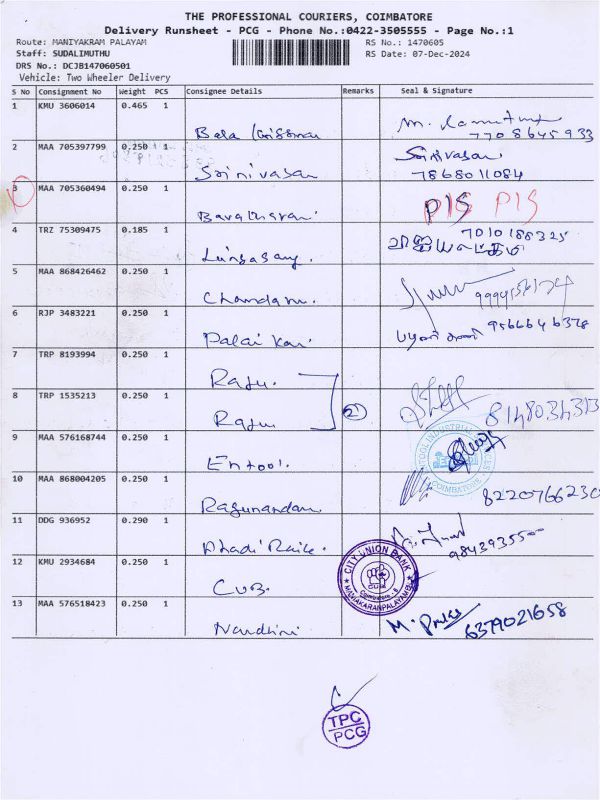 THE PROFESSIONAL COURIERS, COIMBATORE
Delivery Runsheet - PCG - Phone No.:0422-3505555 - Page No.:1
Route: MANIYAKRAM PALAYAM RS No.: 1470605
Staff: SUDALIMUTHU RS Date: 07-Dec-2024
DRS No.: DCJB147060501
Vehicle: Two Wheeler Delivery
S No Consignment No Weight PCS Consignee Details Remarks Seal & Signature
1 KMU 3606014 0.465 1
7708645933
2 MAA 705397799 0.250 1 Srinivasan
Srinivasan 7868011084
3 MAA 705360494 0.250 1
PIS PIS
4 TRZ 75309475 0.185 1 7010188325
5 MAA 868426462 0.250 1
6 RJP 3483221 0.250 1 9566646378
7 TRP 8193994 0.250 1
Raju.
8 TRP 1535213 0.250 1 2
Raju
9 MAA 576168744 0.250 1
Entool.
COIMBATORE
10 MAA 868004205 0.250 1 8220766230
Ragunandan
11 DDG 936952 0.290 1
12 KMU 2934684 0.250 1 CITY UNION BANK
CUB. MANIAKARANPALAYAM
13 MAA 576518423 0.250 1
Nandhini 6379021658
TPC
PCG